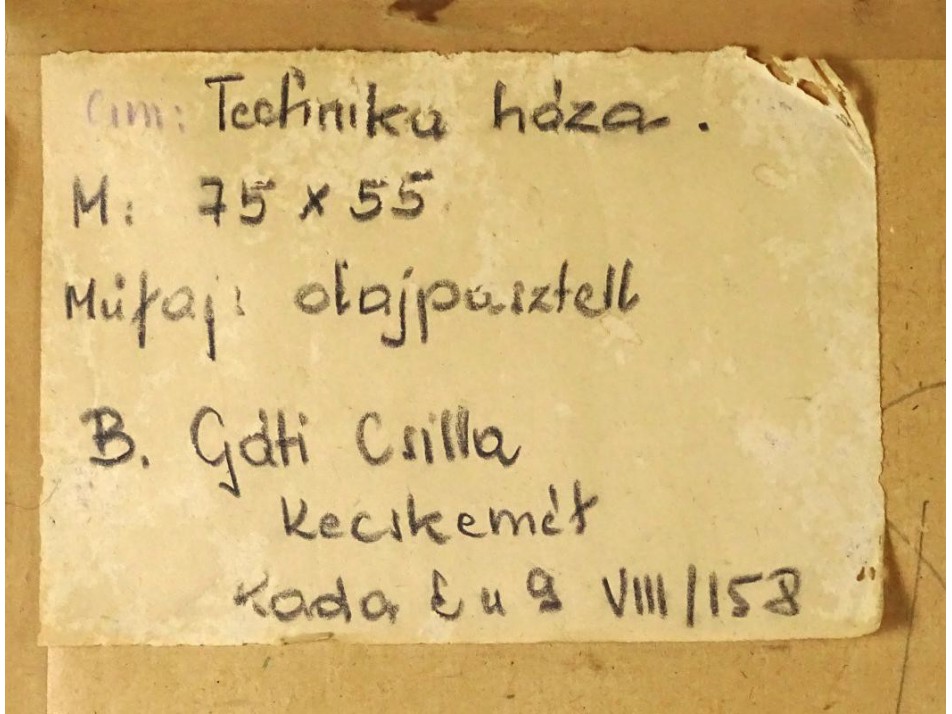 Cim: Technika háza.
M: 75 x 55
Műfaj: olajpasztell
B. Gáti Csilla
Kecskemét
Kada E u 9 VIII/158